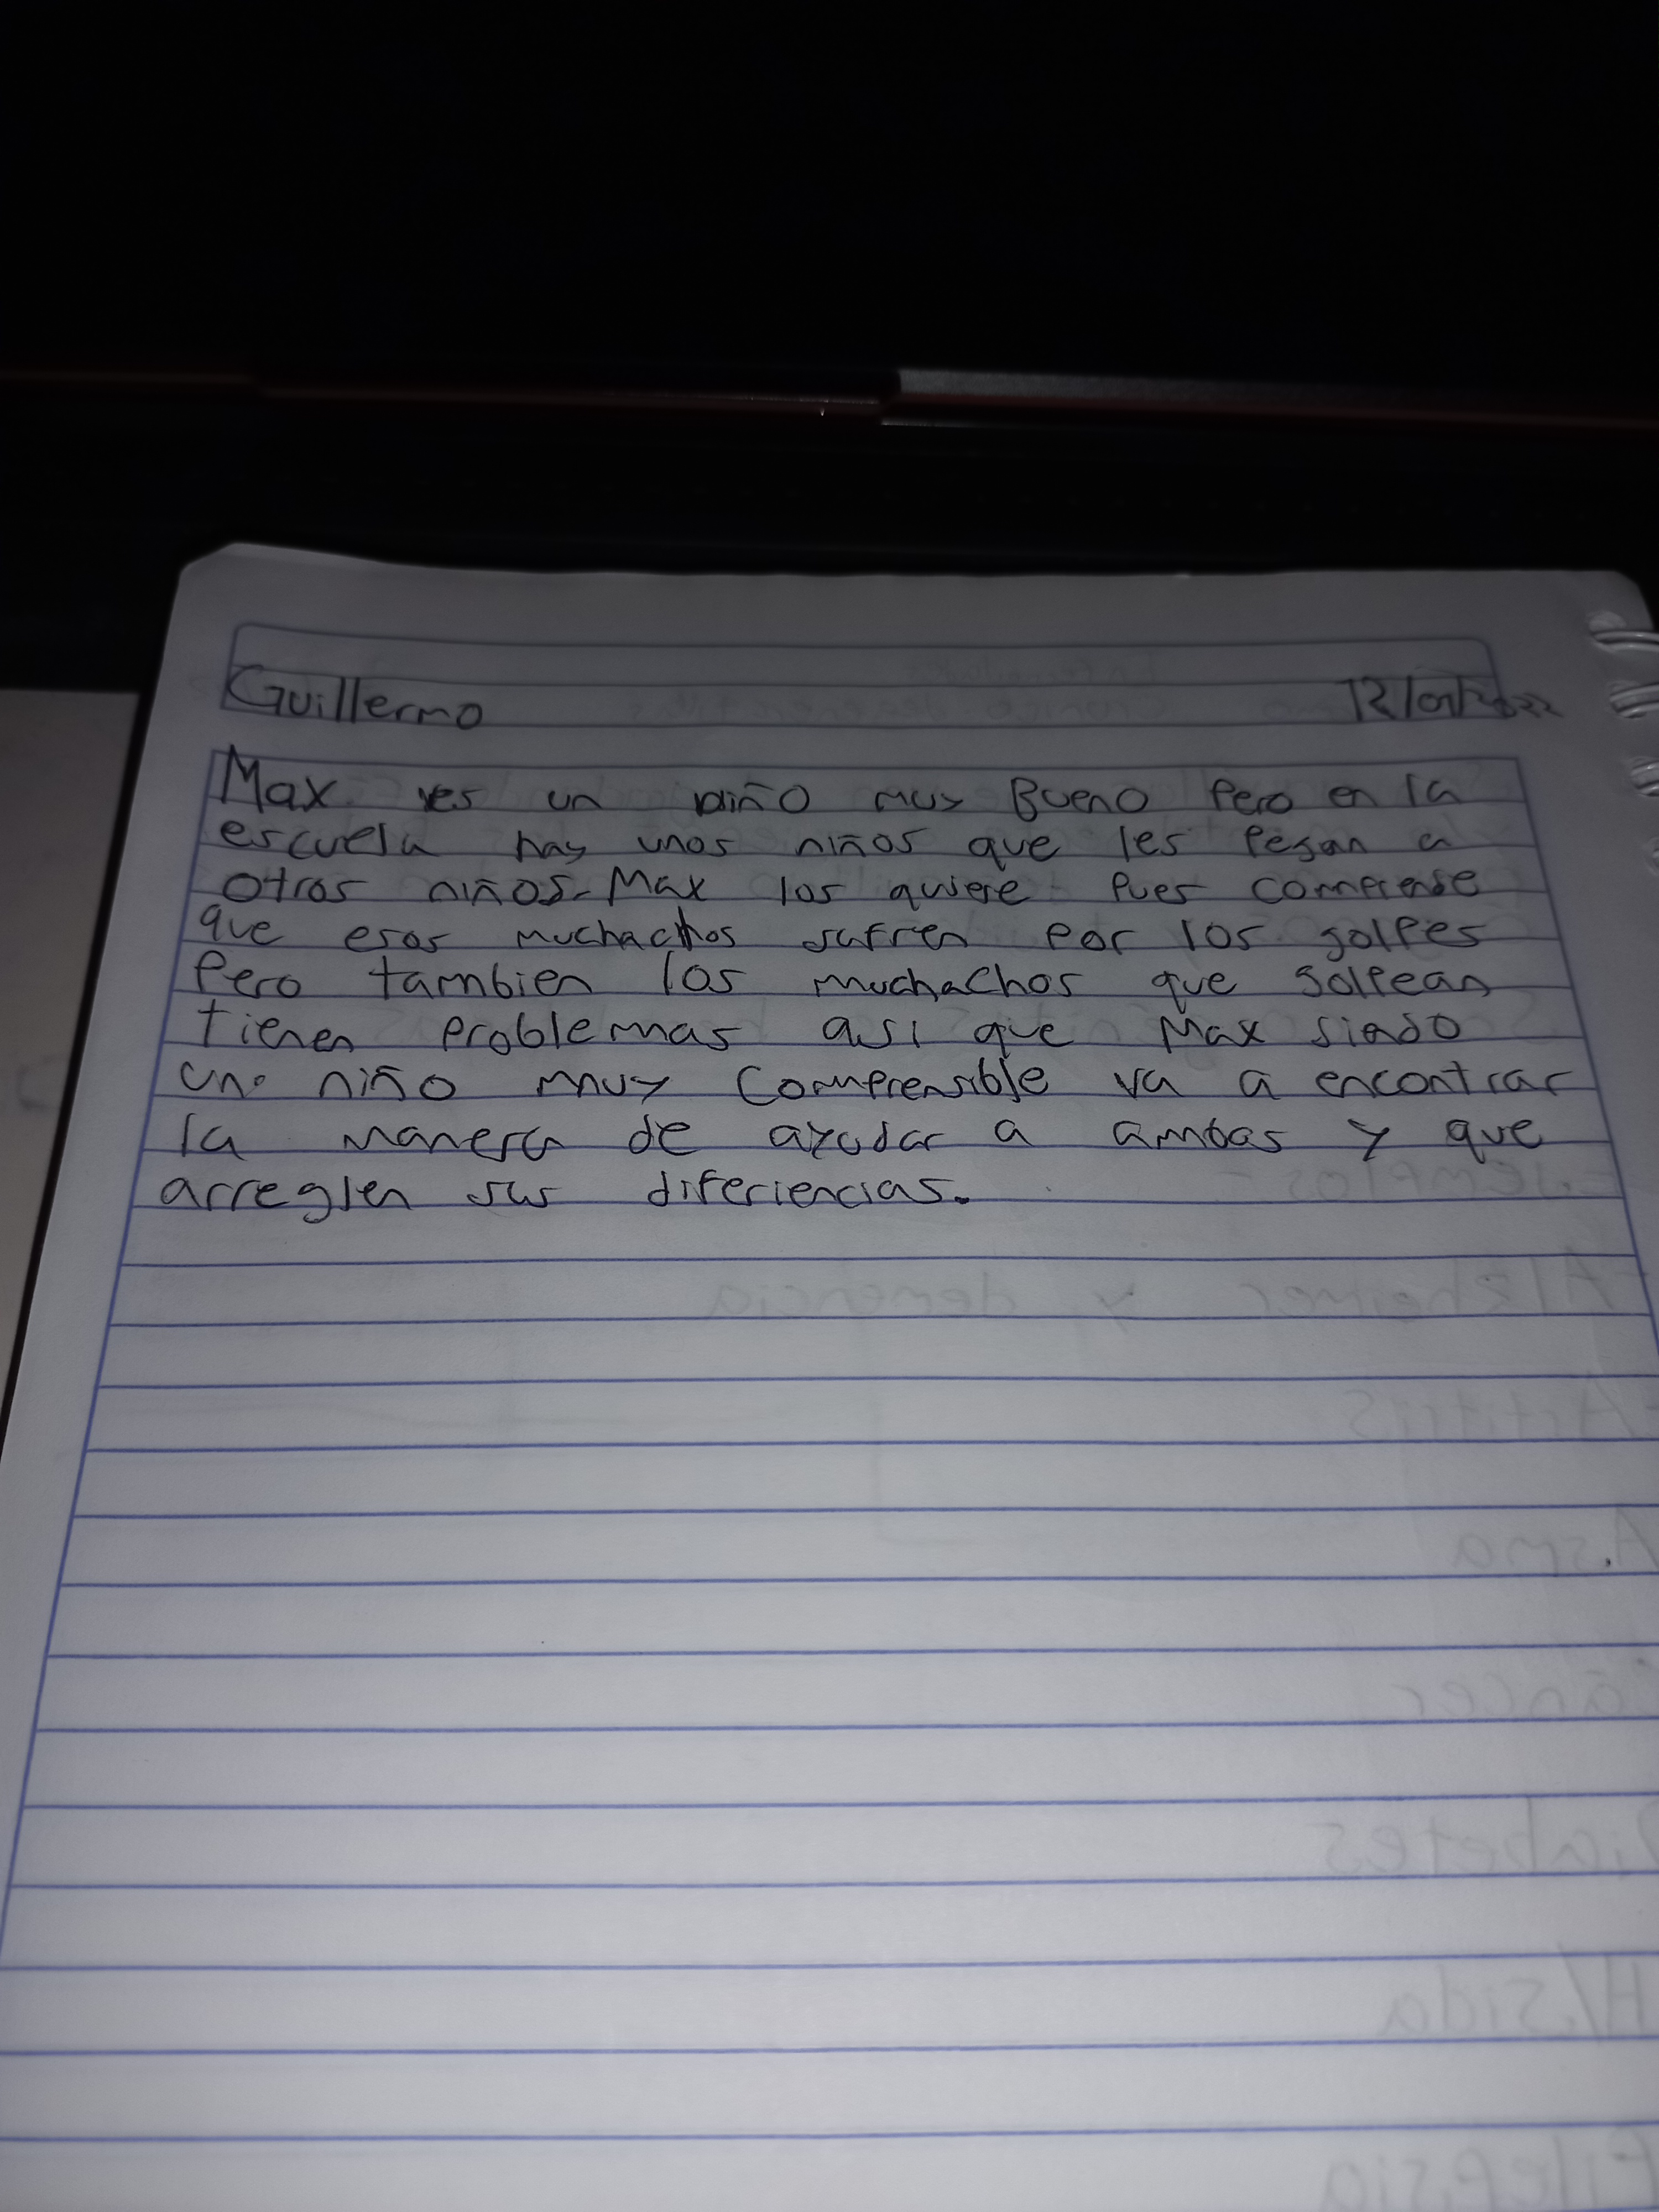 Guillermo
Max es un niño muy Bueno Pero en la
escuela hay unos niños que les Pegan a
otros niños. Max los quiere Pues comprende
que esos muchachos sufren por los golpes
Pero tambien los muchachos que golpean
tienen problemas asi que Max siedo
un niño muy Comprensible va a encontrar
la manera de ayudar a ambas y que
arreglen sus diferiencias.
y demencia
Artitris
Asma